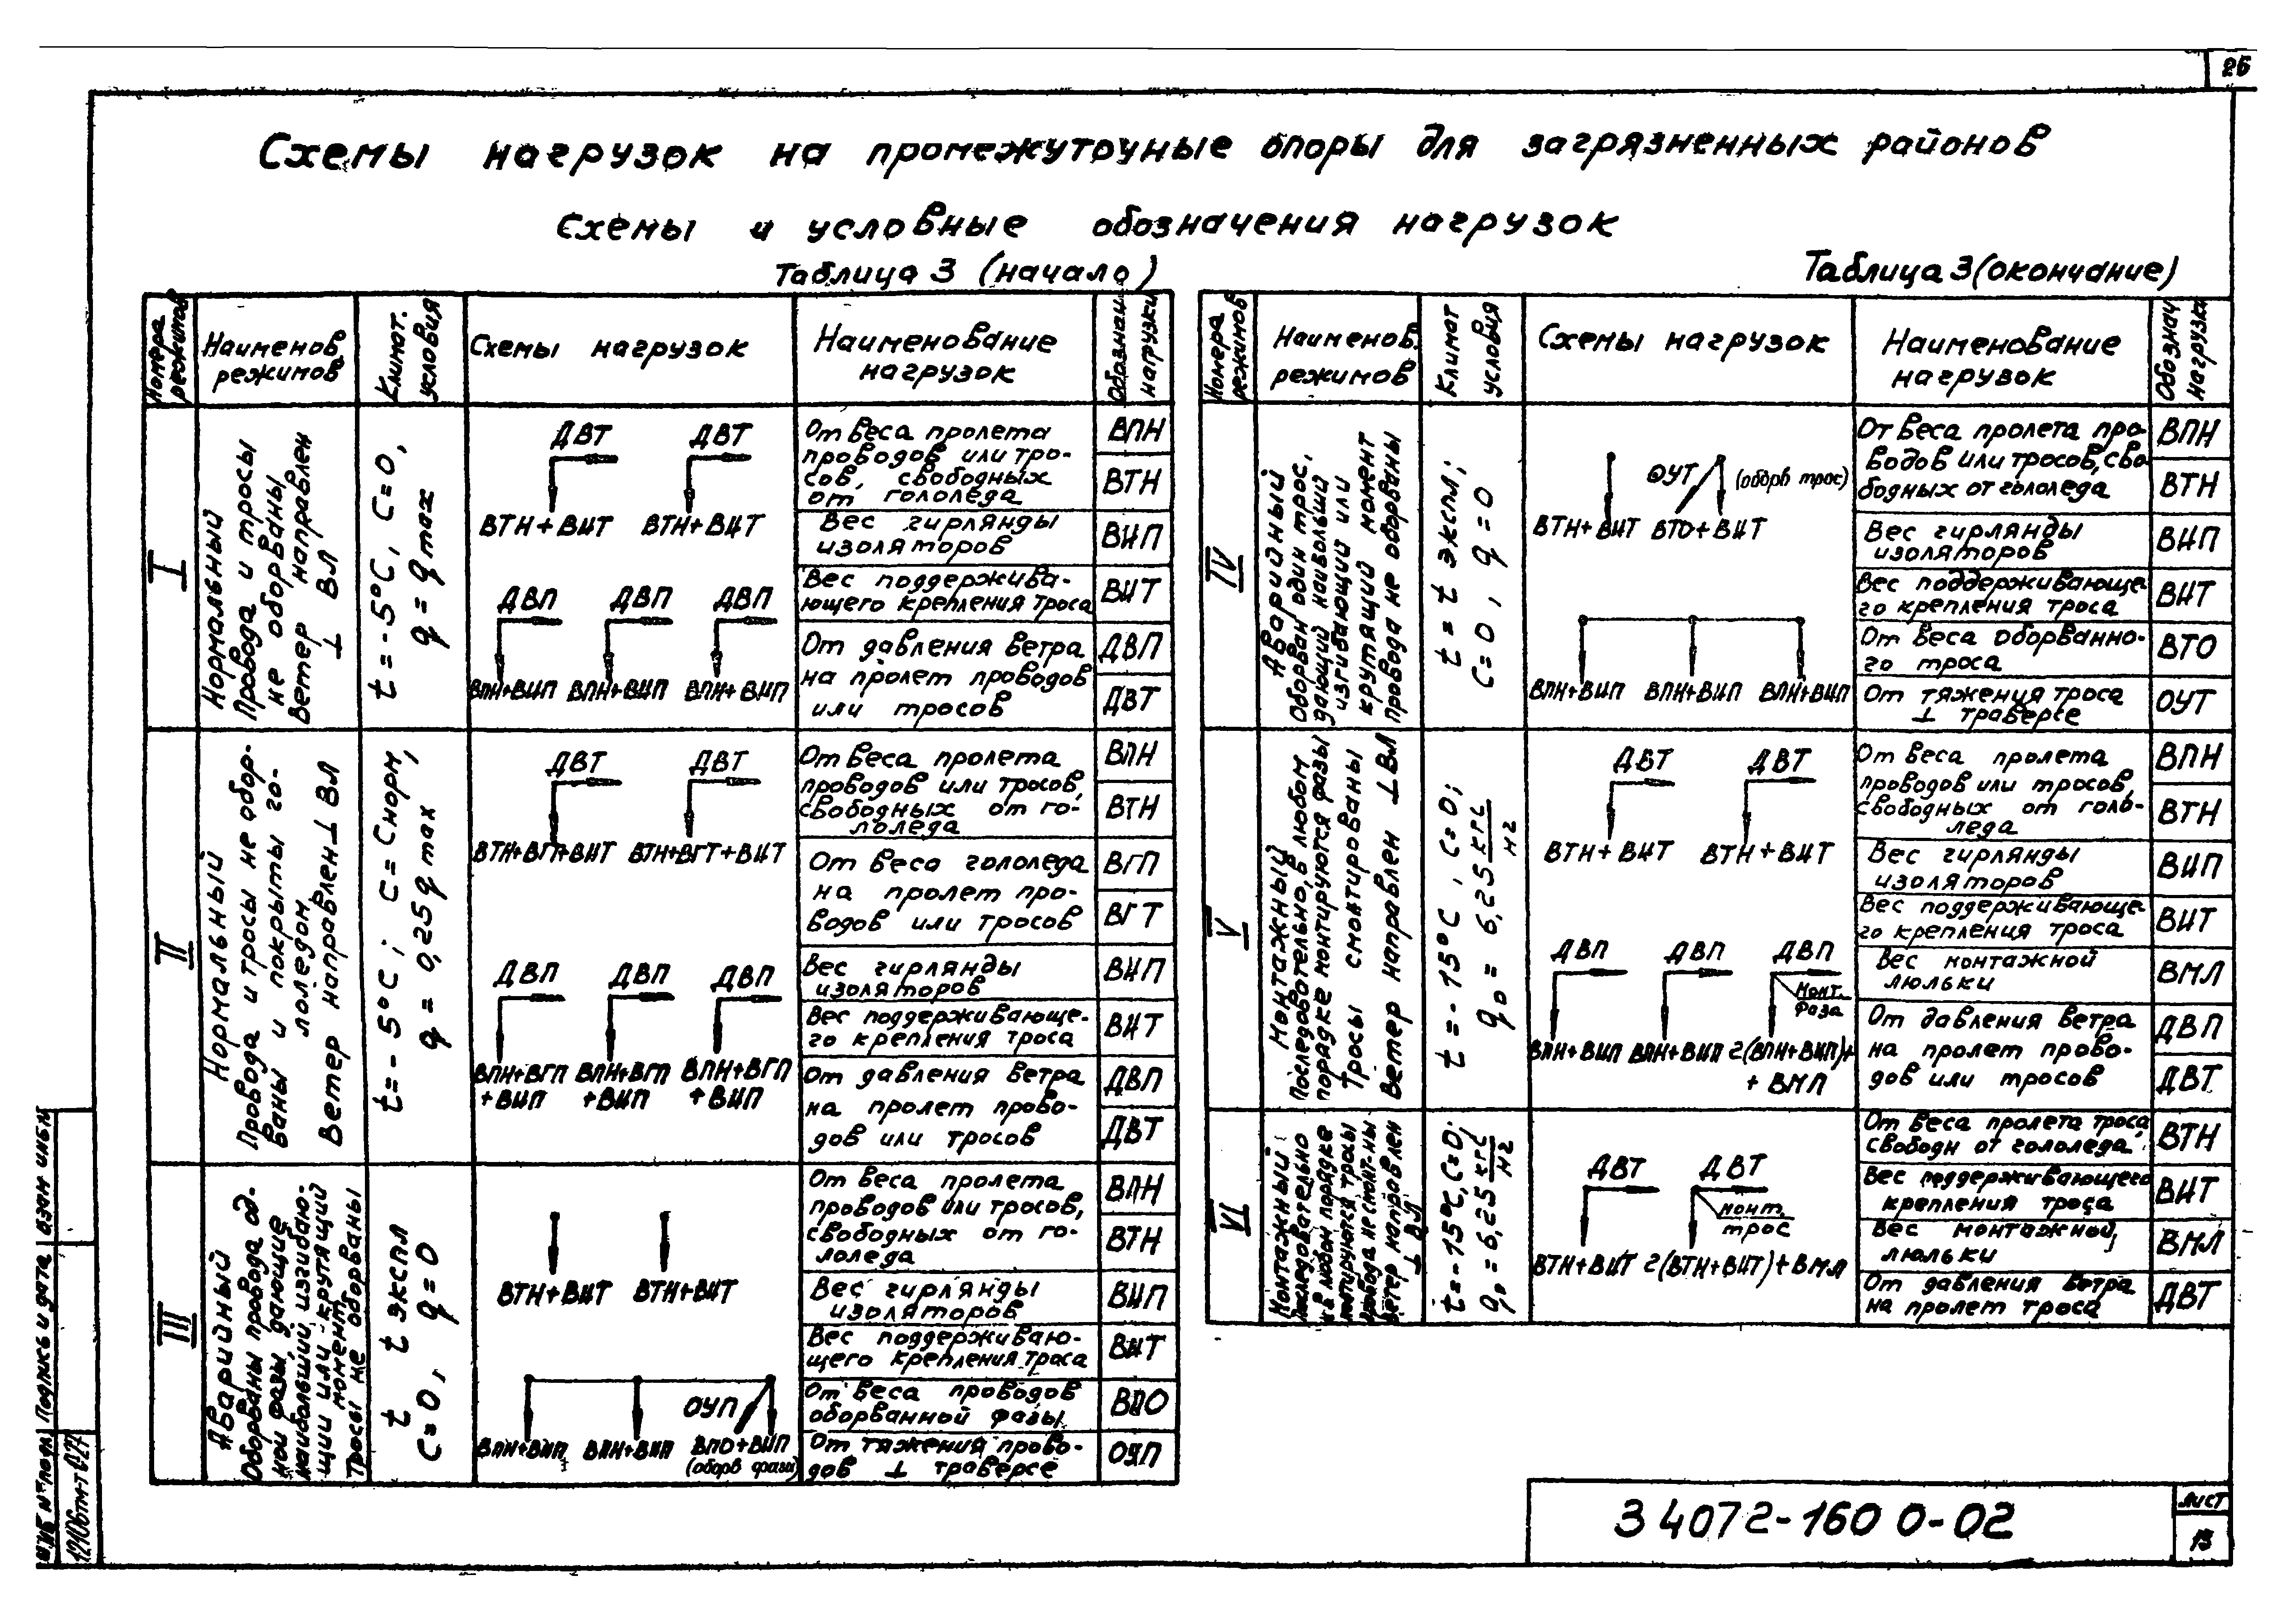 26
Схемы нагрузок на промежуточные опоры для загрязненных районов
Схемы и условные обозначения нагрузок
Таблица 3 (начало)
Номера режимов
Наименов. режимов
Климат. условия
Схемы нагрузок
Наименование нагрузок
Обознач. нагрузки
I
Нормальный
Провода и тросы
не оборваны,
Ветер направлен
⊥ ВЛ
t = -5°C, C=0,
q = q max
ДВТ ДВТ
ВТН+ВИТ ВТН+ВИТ
ДВП ДВП ДВП
ВПН+ВИП ВПН+ВИП ВПН+ВИП
От веса пролета
проводов или тро-
сов, свободных
от гололеда
ВПН
ВТН
Вес гирлянды
изоляторов
ВИП
Вес поддержива-
ющего крепления троса
ВИТ
От давления ветра
на пролет проводов
или тросов
ДВП
ДВТ
II
Нормальный
Провода и тросы не обор-
ваны и покрыты го-
лоледом
Ветер направлен ⊥ ВЛ
t = -5°C; C = Cнорм,
q = 0,25 q max
ДВТ ДВТ
ВТН+ВГТ+ВИТ ВТН+ВГТ+ВИТ
ДВП ДВП ДВП
ВПН+ВГП ВПН+ВГП ВПН+ВГП
+ВИП +ВИП +ВИП
От веса пролета
проводов или тросов,
свободных от го-
лоледа
ВПН
ВТН
От веса гололеда
на пролет про-
водов или тросов
ВГП
ВГТ
Вес гирлянды
изоляторов
ВИП
Вес поддерживающе-
го крепления троса
ВИТ
От давления ветра
на пролет прово-
дов или тросов
ДВП
ДВТ
III
Аварийный
Оборваны провода од-
ной фазы, дающие
наибольший изгибаю-
щий или крутящий
момент
Тросы не оборваны
t = t экспл
C=0, q=0
ВТН+ВИТ ВТН+ВИТ
ОУП
ВПН+ВИП ВПН+ВИП ВПО+ВИП
(оборв фаза)
От веса пролета
проводов или тросов,
свободных от го-
лоледа
ВПН
ВТН
Вес гирлянды
изоляторов
ВИП
Вес поддерживаю-
щего крепления троса
ВИТ
От веса проводов
оборванной фазы
ВПО
От тяжения прово-
дов ⊥ траверсе
ОУП
Таблица 3 (окончание)
Номера режимов
Наименов. режимов
Климат условия
Схемы нагрузок
Наименование нагрузок
Обознач нагрузки
IV
Аварийный
Оборван один трос,
дающий наибольший
изгибающий или
крутящий момент
Провода не оборваны
t = t экспл;
C=0, q=0
ОУТ (оборв трос)
ВТН+ВИТ ВТО+ВИТ
ВПН+ВИП ВПН+ВИП ВПН+ВИП
От веса пролета про-
водов или тросов, сво-
бодных от гололеда
ВПН
ВТН
Вес гирлянды
изоляторов
ВИП
Вес поддерживающе-
го крепления троса
ВИТ
От веса оборванно-
го троса
ВТО
От тяжения троса
⊥ траверсе
ОУТ
V
Монтажный
Последовательно, в любом
порядке монтируются фазы
Тросы смонтированы
Ветер направлен ⊥ ВЛ
t = -15°C, C=0;
q₀ = 6,25 кгс/м2
ДВТ ДВТ
ВТН+ВИТ ВТН+ВИТ
ДВП ДВП ДВП
монт. фаза
ВПН+ВИП ВПН+ВИП 2(ВПН+ВИП)+
+ВМЛ
От веса пролета
проводов или тросов,
свободных от голо-
леда
ВПН
ВТН
Вес гирлянды
изоляторов
ВИП
Вес поддерживающе-
го крепления троса
ВИТ
Вес монтажной
люльки
ВМЛ
От давления ветра
на пролет прово-
дов или тросов
ДВП
ДВТ
VI
Монтажный
Последовательно
и в любом порядке
монтируются тросы
Провода несмонт-ны
Ветер направлен
⊥ ВЛ
t=-15°C, C=0.
q₀=6,25 кгс/м2
ДВТ ДВТ
монт. трос
ВТН+ВИТ 2(ВТН+ВИТ)+ВМЛ
От веса пролета троса
свободн от гололеда
ВТН
Вес поддерживающего
крепления троса
ВИТ
Вес монтажной
люльки
ВМЛ
От давления ветра
на пролет троса
ДВТ
Инв № подл Подпись и дата Взам инв №
12106тм-т
3 4072-160 0-02
Лист
13